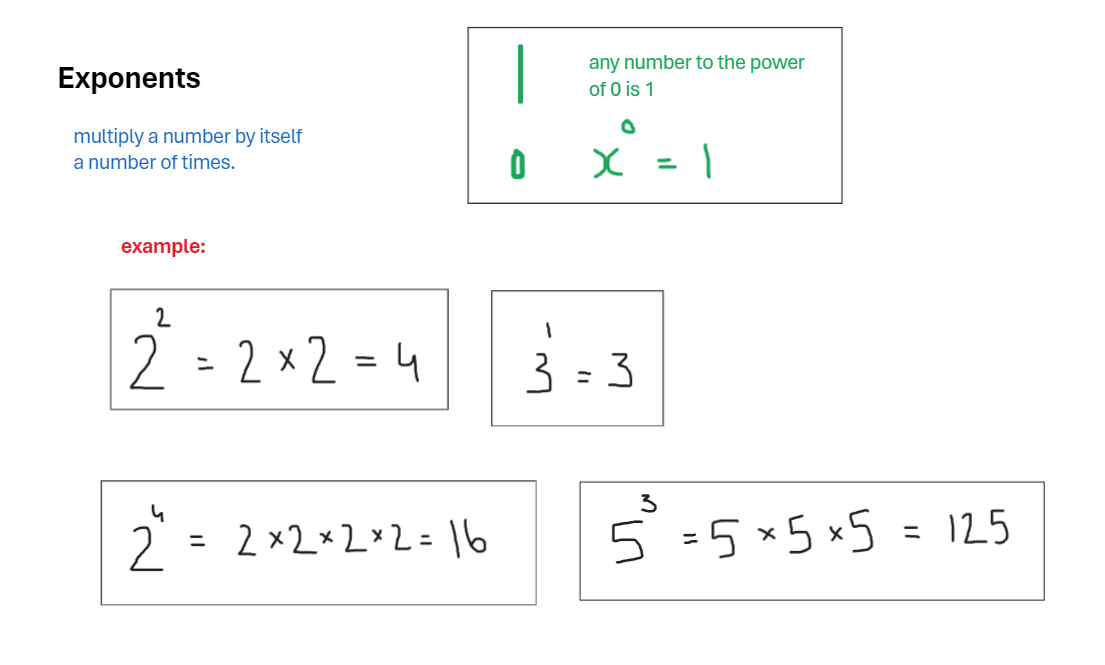 Exponents
multiply a number by itself
a number of times.
| any number to the power
of 0 is 1
0 x⁰ = 1
example:
2² = 2 × 2 = 4
3¹ = 3
2⁴ = 2 × 2 × 2 × 2 = 16
5³ = 5 × 5 × 5 = 125